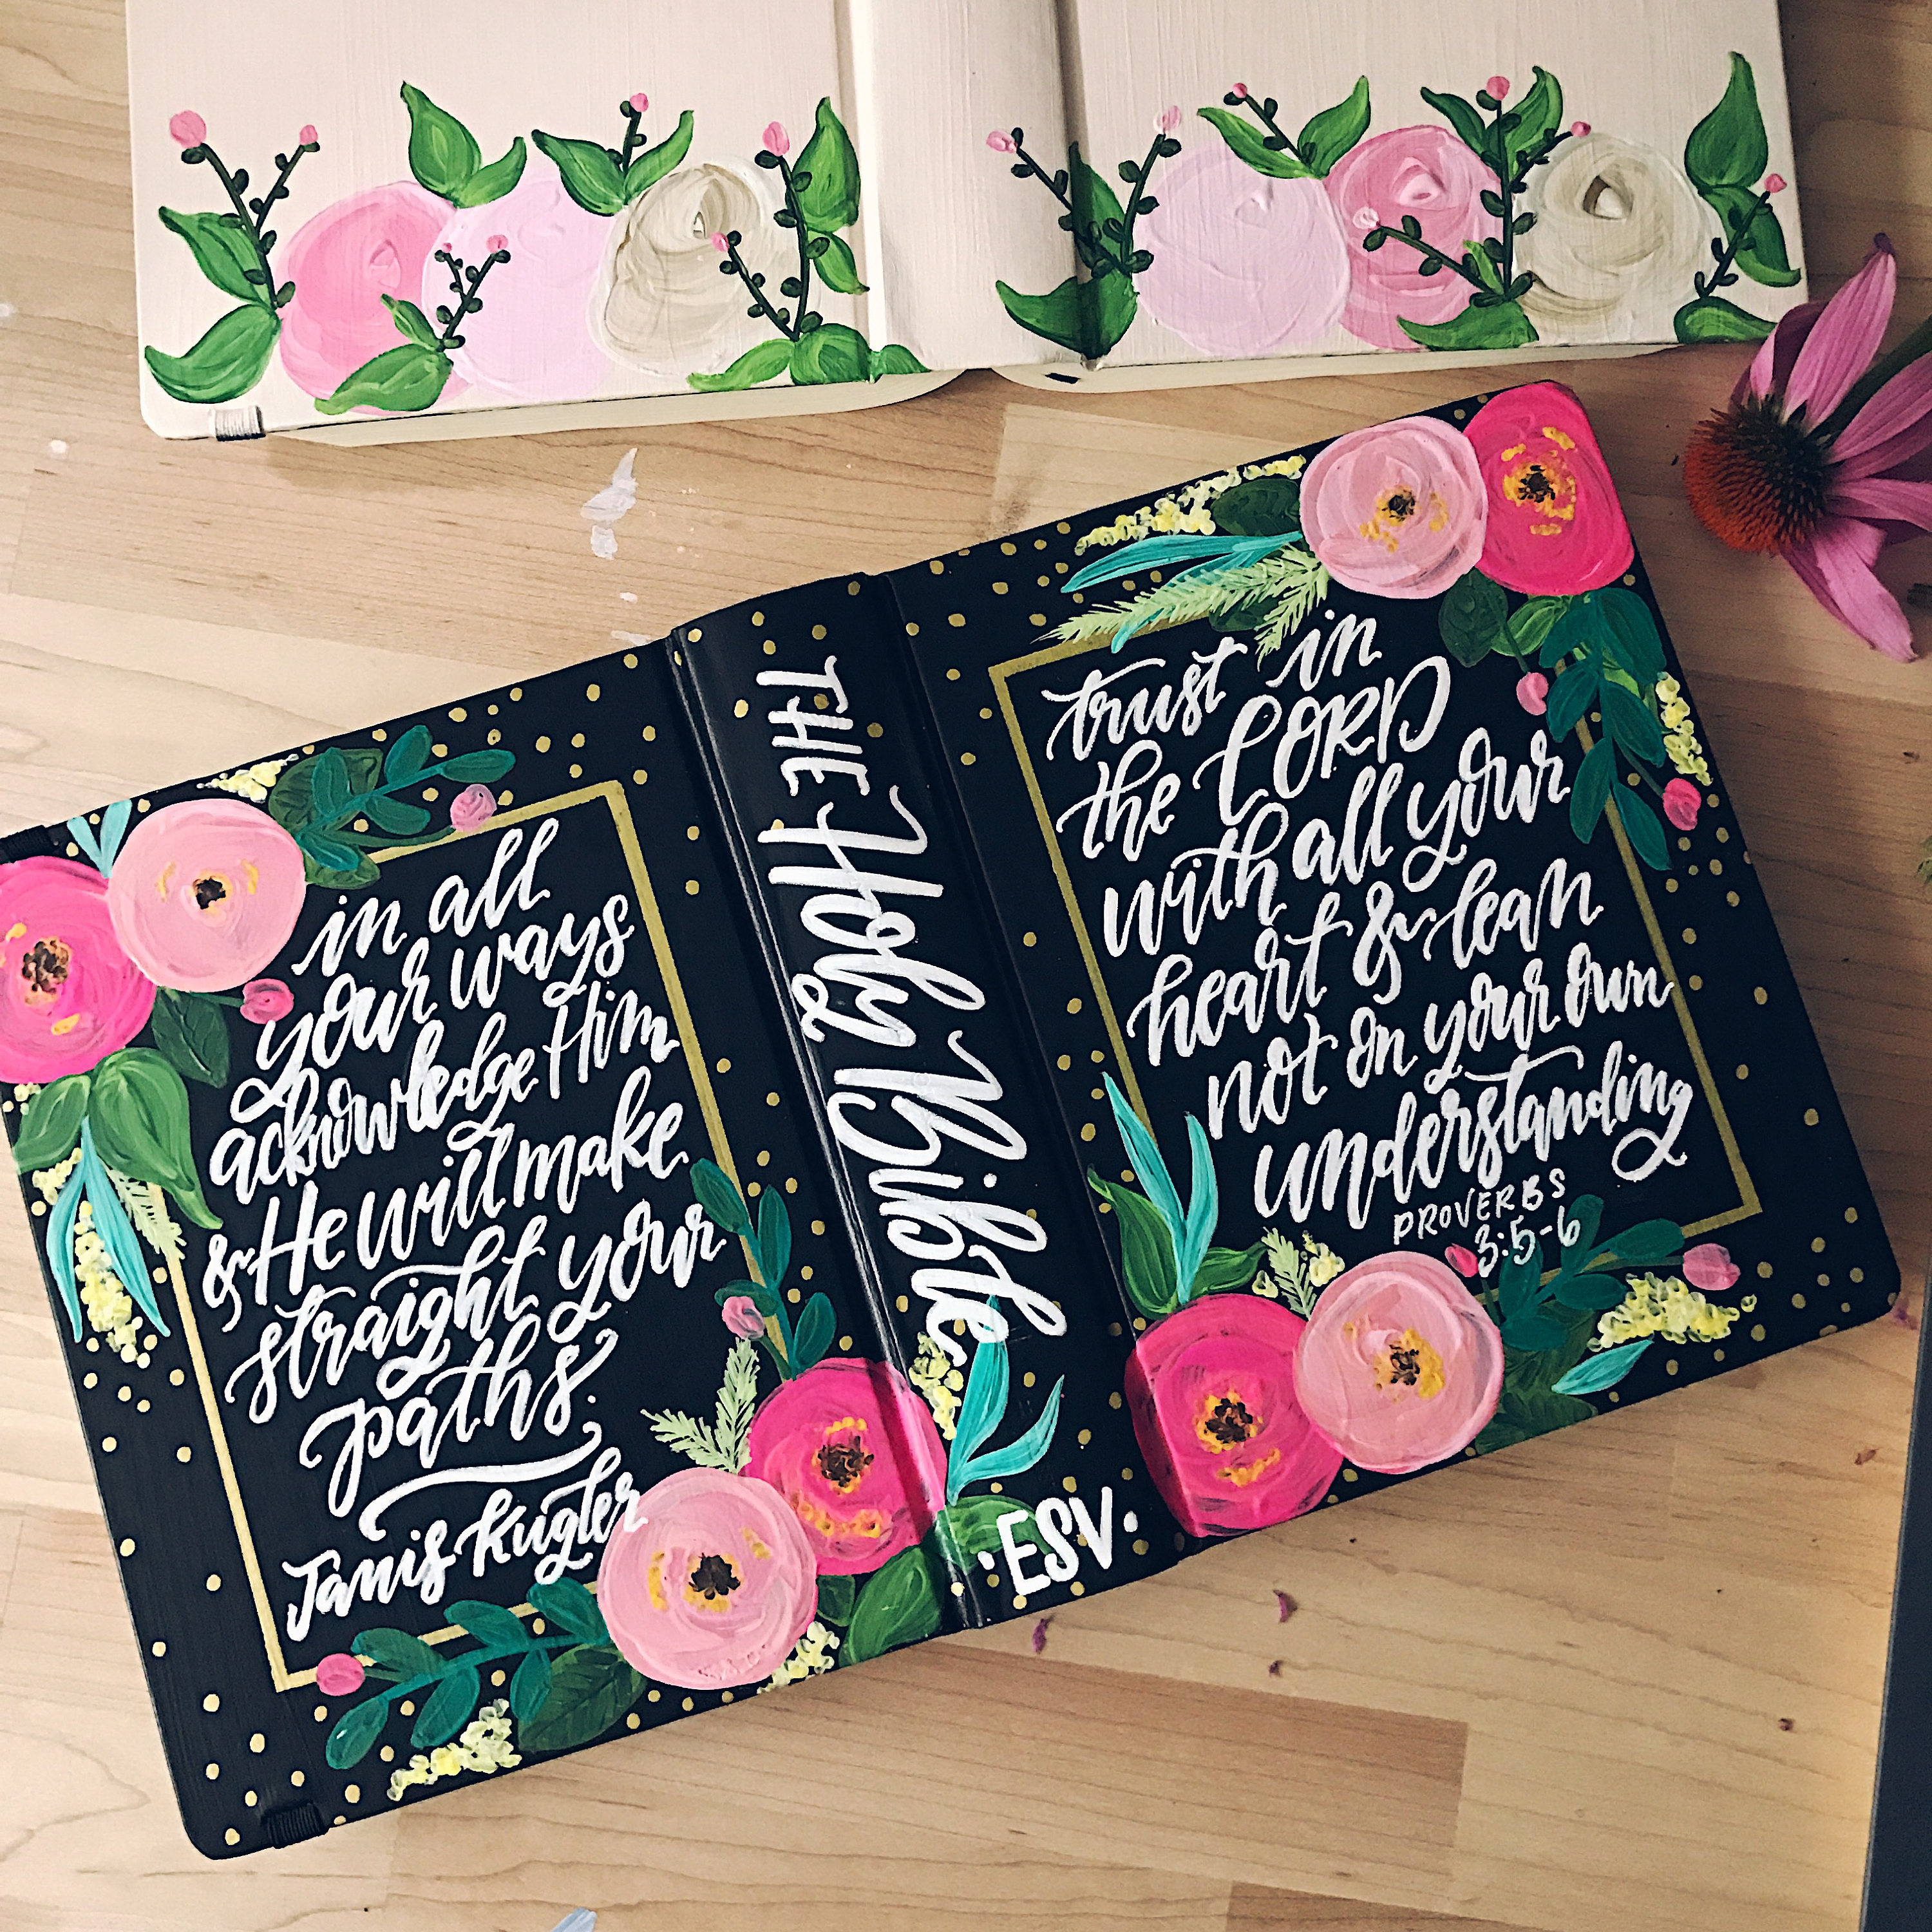 trust in
the LORD
with all your
heart & lean
not on your own
understanding
PROVERBS
3:5-6
THE Holy Bible
·ESV·
in all
your ways
acknowledge Him
& He will make
straight your
paths.
Janis Kugler